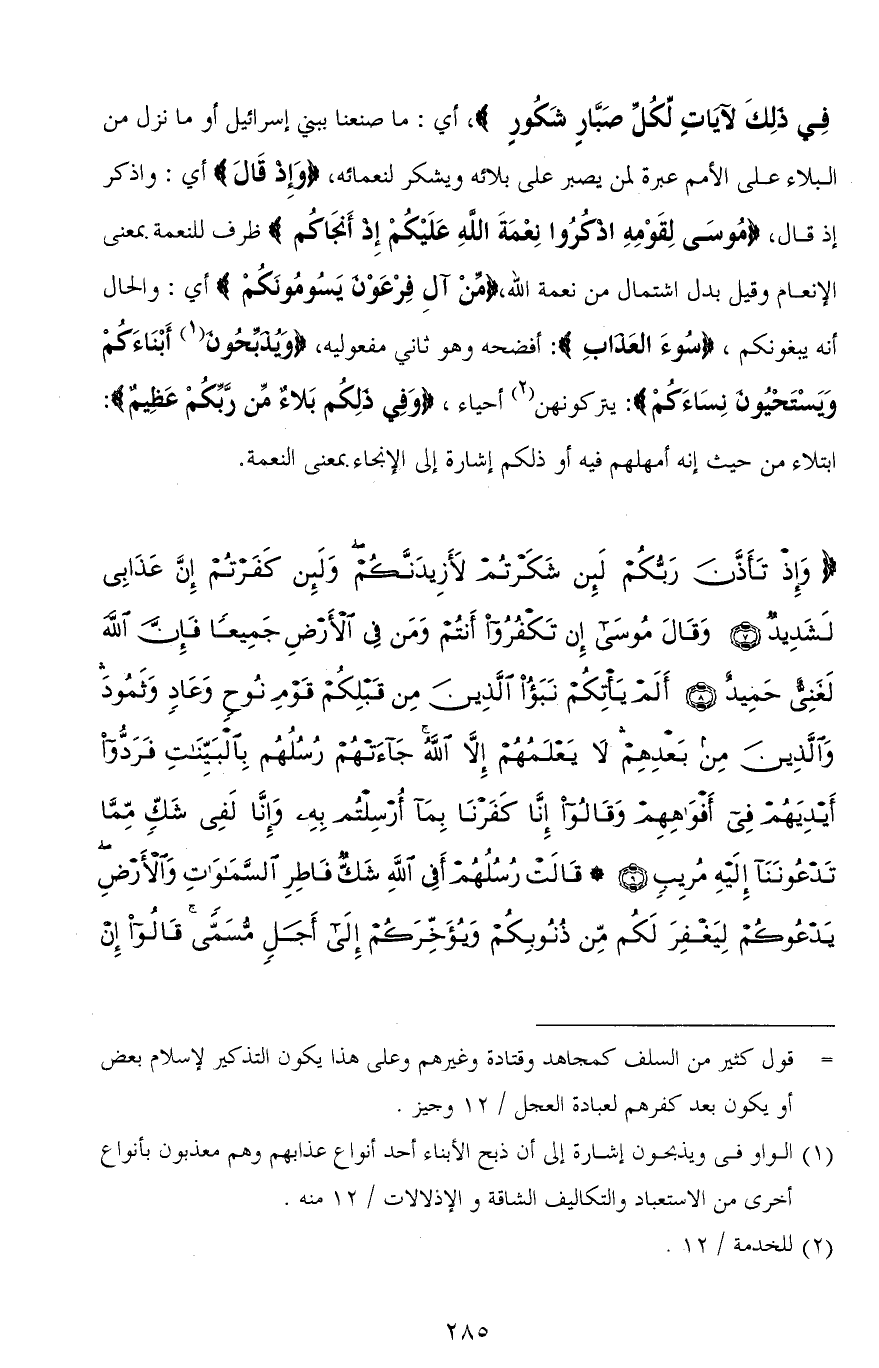 فِي ذَلِكَ لآيَاتٍ لِّكُلِّ صَبَّارٍ شَكُورٍ ﴾، أي : ما صنعنا ببني إسرائيل أو ما نزل من
البلاء على الأمم عبرة لمن يصبر على بلائه ويشكر لنعمائه، ﴿وَإِذْ قَالَ﴾ أي : واذكر
إذ قال، ﴿مُوسَى لِقَوْمِهِ اذْكُرُوا نِعْمَةَ اللَّهِ عَلَيْكُمْ إِذْ أَنجَاكُم ﴾ ظرف للنعمة بمعنى
الإنعام وقيل بدل اشتمال من نعمة الله،﴿مِّنْ آلِ فِرْعَوْنَ يَسُومُونَكُمْ ﴾ أي : والحال
أنه يبغونكم ، ﴿سُوءَ العَذَابِ ﴾: أفضحه وهو ثاني مفعوليه، ﴿وَيُذَبِّحُونَ(١) أَبْنَاءَكُمْ
وَيَسْتَحْيُونَ نِسَاءَكُمْ﴾: يتركونهن(٢) أحياء ، ﴿وَفِي ذَلِكُم بَلاءٌ مِّن رَّبِّكُمْ عَظِيمٌ﴾:
ابتلاء من حيث إنه أمهلهم فيه أو ذلكم إشارة إلى الإنجاء بمعنى النعمة.
﴿ وَإِذْ تَأَذَّنَ رَبُّكُمْ لَئِن شَكَرْتُمْ لَأَزِيدَنَّكُمْ ۖ وَلَئِن كَفَرْتُمْ إِنَّ عَذَابِى
لَشَدِيدٌ ٧ وَقَالَ مُوسَىٰٓ إِن تَكْفُرُوٓا۟ أَنتُمْ وَمَن فِى ٱلْأَرْضِ جَمِيعًا فَإِنَّ ٱللَّهَ
لَغَنِىٌّ حَمِيدٌ ٨ أَلَمْ يَأْتِكُمْ نَبَؤُا۟ ٱلَّذِينَ مِن قَبْلِكُمْ قَوْمِ نُوحٍ وَعَادٍ وَثَمُودَ ۛ
وَٱلَّذِينَ مِنۢ بَعْدِهِمْ ۛ لَا يَعْلَمُهُمْ إِلَّا ٱللَّهُ ۚ جَآءَتْهُمْ رُسُلُهُم بِٱلْبَيِّنَـٰتِ فَرَدُّوٓا۟
أَيْدِيَهُمْ فِىٓ أَفْوَٰهِهِمْ وَقَالُوٓا۟ إِنَّا كَفَرْنَا بِمَآ أُرْسِلْتُم بِهِۦ وَإِنَّا لَفِى شَكٍّ مِّمَّا
تَدْعُونَنَآ إِلَيْهِ مُرِيبٍ ٩ * قَالَتْ رُسُلُهُمْ أَفِى ٱللَّهِ شَكٌّ فَاطِرِ ٱلسَّمَـٰوَٰتِ وَٱلْأَرْضِ ۖ
يَدْعُوكُمْ لِيَغْفِرَ لَكُم مِّن ذُنُوبِكُمْ وَيُؤَخِّرَكُمْ إِلَىٰٓ أَجَلٍ مُّسَمًّى ۚ قَالُوٓا۟ إِنْ
= قول كثير من السلف كمجاهد وقتادة وغيرهم وعلى هذا يكون التذكير لإسلام بعض
أو يكون بعد كفرهم لعبادة العجل / ١٢ وجيز .
(١) الواو فى ويذبحون إشارة إلى أن ذبح الأبناء أحد أنواع عذابهم وهم معذبون بأنواع
أخرى من الاستعباد والتكاليف الشاقة و الإذلالات / ١٢ منه .
(٢) للخدمة / ١٢ .
٢٨٥